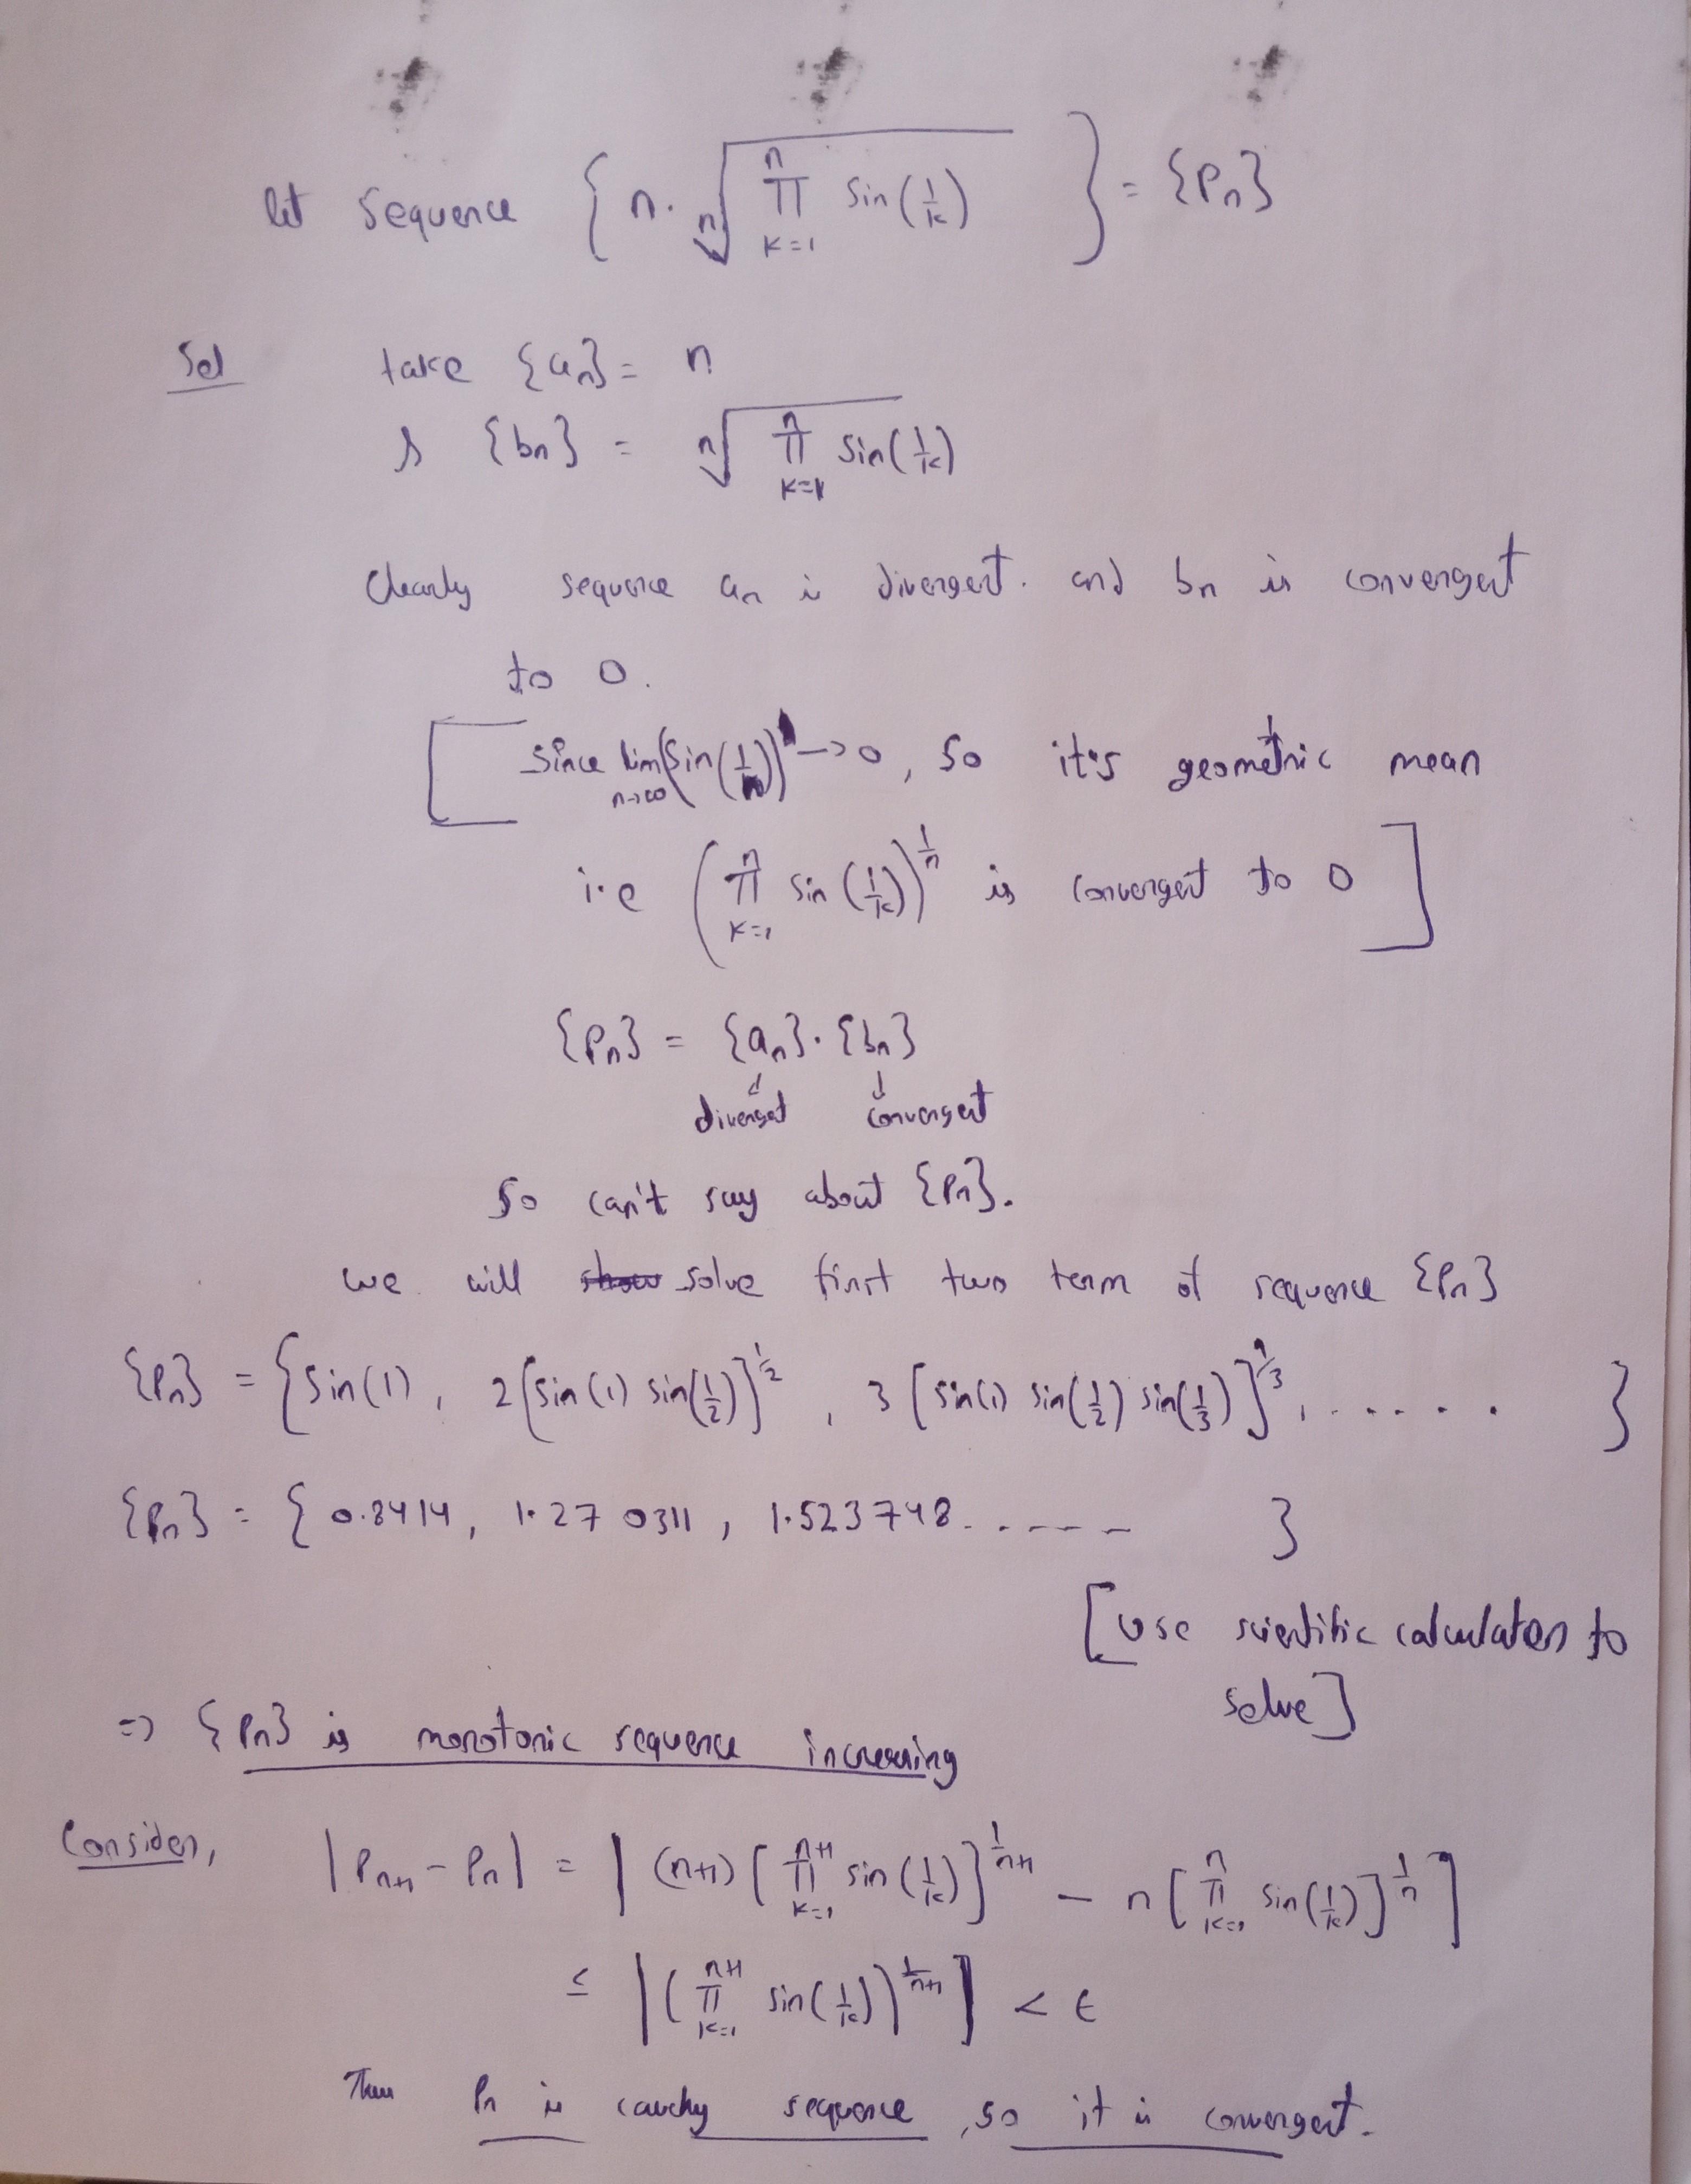 let sequence { n. ⁿ√(∏_{k=1}^{n} sin(1/k)) } = {Pn}
Sol take {an} = n
& {bn} = ⁿ√(∏_{k=1}^{n} sin(1/k))
Clearly sequence an is divergent. and bn is convergent
to 0.
[ Since lim_{n→∞} (sin(1/n)) → 0, so it's geometric mean
i.e (∏_{k=1}^{n} sin(1/k))^{1/n} is convergent to 0 ]
{Pn} = {an}.{bn}
↓ ↓
divergent convergent
So can't say about {Pn}.
we will solve first two term of sequence {Pn}
{Pn} = { Sin(1), 2[sin(1) sin(1/2)]^{1/2}, 3[sin(1) sin(1/2) sin(1/3)]^{1/3}, ...... }
{Pn} = { 0.8414, 1.270311, 1.523748...... }
[use scientific calculator to
solve]
=> {Pn} is monotonic sequence increasing
Consider, |Pn+1 - Pn| = | (n+1) [∏_{k=1}^{n+1} sin(1/k)]^{1/n+1} - n [∏_{k=1}^{n} sin(1/k)]^{1/n} |
≤ | (∏_{k=1}^{n+1} sin(1/k))^{1/n+1} | < ε
Thus Pn is cauchy sequence, so it is convergent.